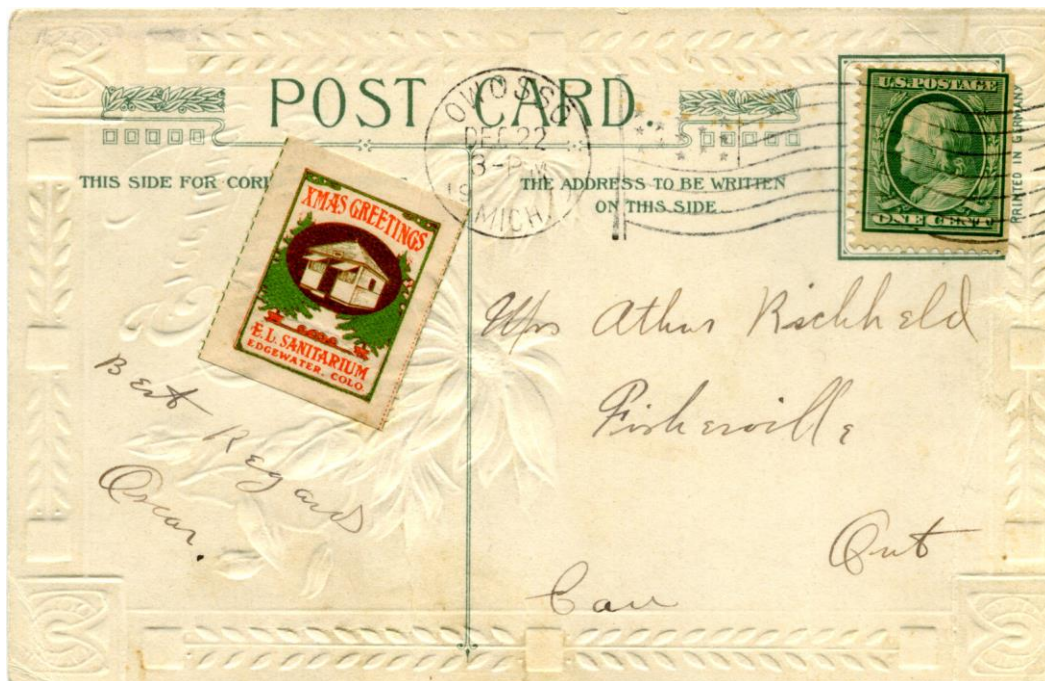 POST CARD.
OWOSSO
DEC 22
3-PM
MICH.
U.S. POSTAGE
ONE CENT
PRINTED IN GERMANY
THIS SIDE FOR
THE ADDRESS TO BE WRITTEN
ON THIS SIDE
XMAS GREETINGS
E.L. SANITARIUM
EDGEWATER, COLO
Best Regard
Oscar.
Mrs Athur Richheld
Fisherville
Ont
Can